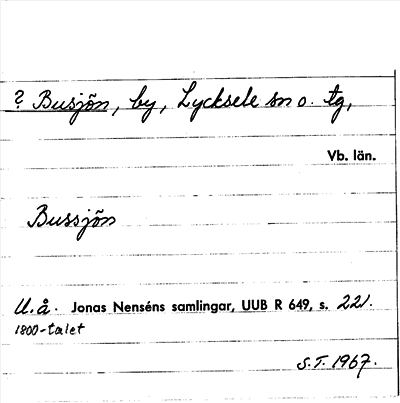 ? Busjön, by, Lycksele sn o. tg,
Vb. län.
Bussjön
U.å. Jonas Nenséns samlingar, UUB R 649, s. 221.
1800-talet
S.T. 1967.